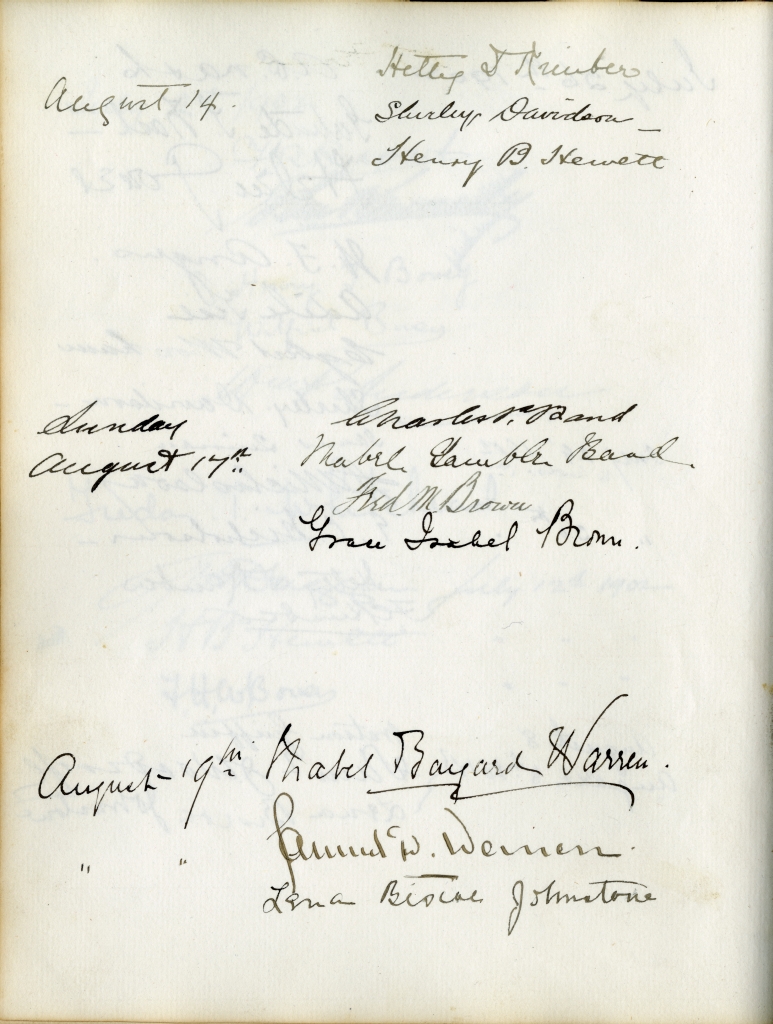 August 14. Hettie T Kimber
Shirley Davidson
Henry B. Hewett
Sunday Charles P. Band
August 17th. Mabel Gamble Band.
Fred. M. Brown
Grace Isabel Brown.
August 19th Mabel Bayard Warren.
" " Samuel D. Warren.
Lena Biscoe Johnstone